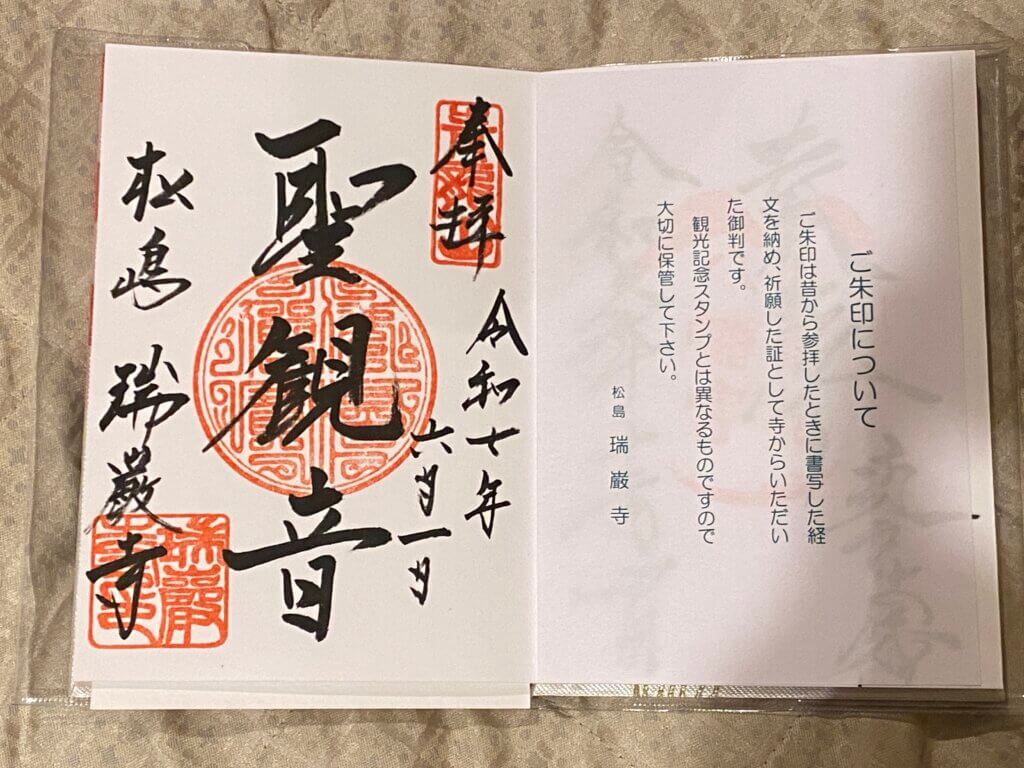 ご朱印について
ご朱印は昔から参拝したときに書写した経
文を納め、祈願した証として寺からいただい
た御判です。
観光記念スタンプとは異なるものですので
大切に保管して下さい。
松島 瑞巌寺
奉拝
令和七年
六月一日
聖観音
松嶋 瑞巌寺